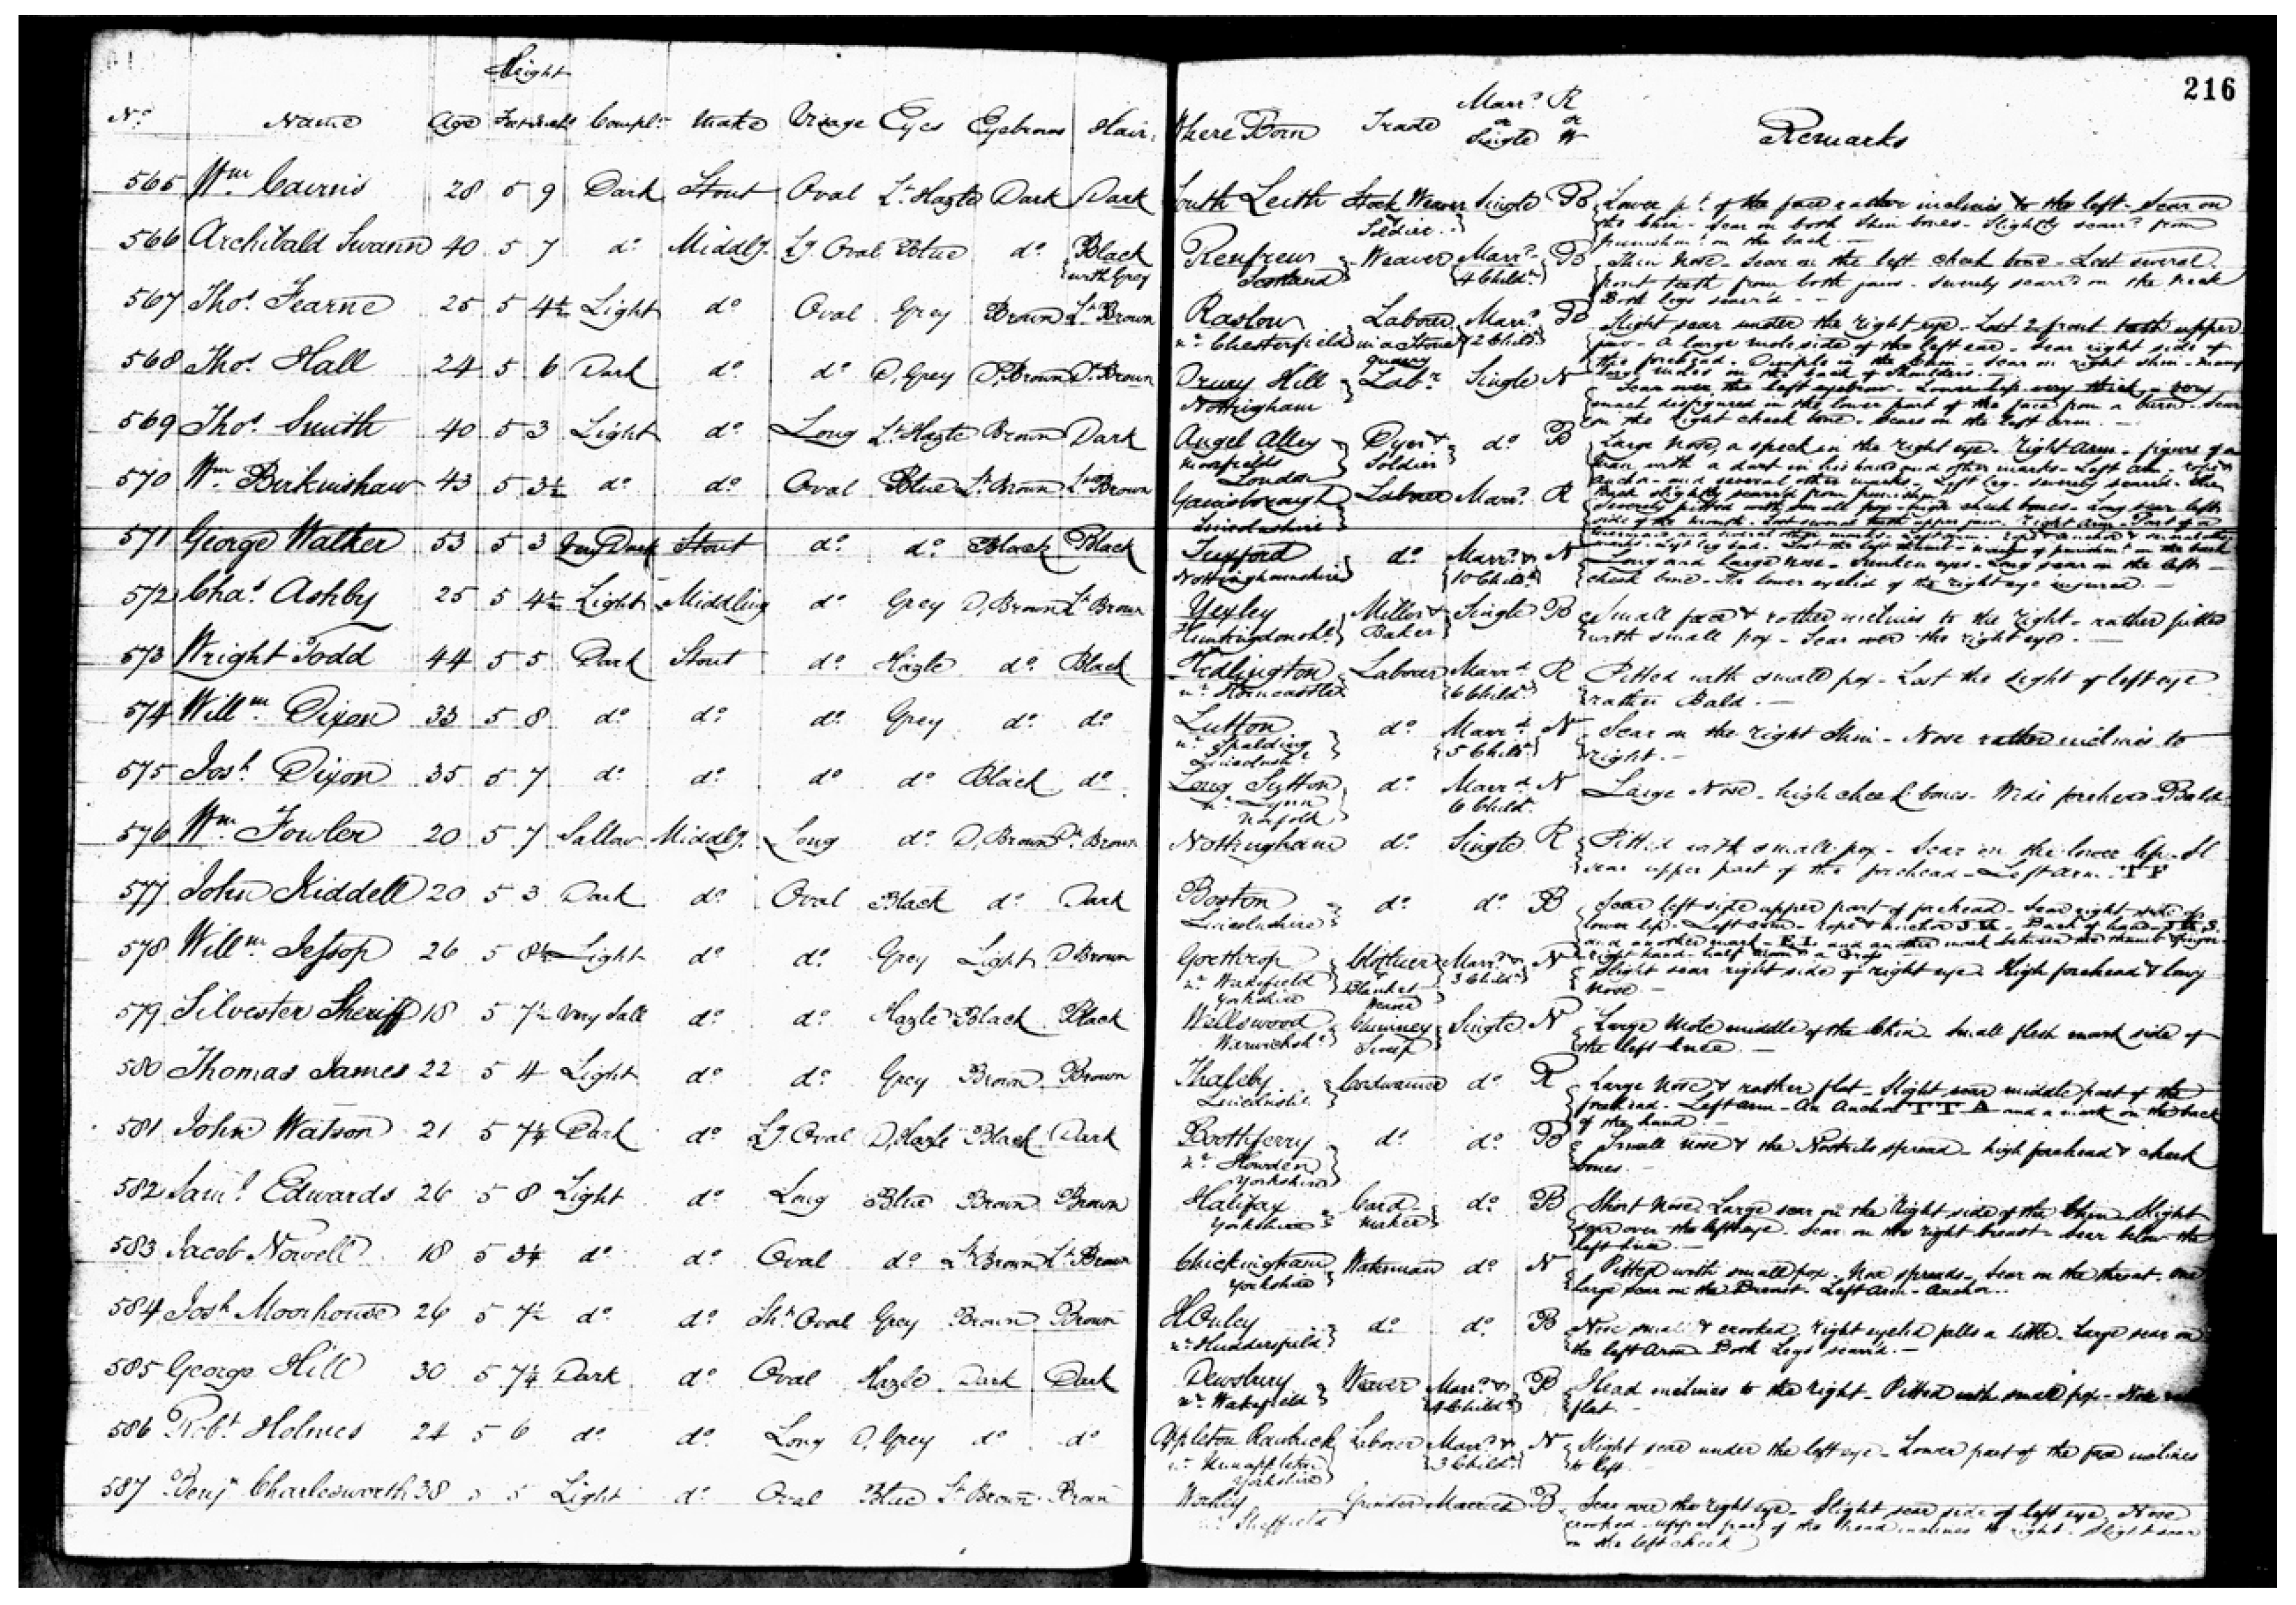 216
Height
No. Name Age Feet Inches Compln. Make Visage Eyes Eyebrows Hair Where Born Trade Marrd. or Single R or W Remarks
565 Wm Cairnis 28 5 9 Dark Stout Oval Lt. Hazle Dark Dark South Leith Stock Weaver Soldier Single B Lower pt. of the face rather inclines to the left - Scar on
the Chin - Scar on both Shin bones - Slightly scarrd. from
punishmt. on the back. -
566 Archibald Swann 40 5 7 do. Middlg. Lg. Oval Blue do. Black with Grey Renfrew Scotland Weaver Marrd. 4 Childn. B Thin Nose - Scar on the left cheek bone - Lost several
front teeth from both jaws - Severely scarrd. on the Neck
Both legs scarr'd - -
567 Thos. Fearne 25 5 4½ Light do. Oval Grey Brown Lt. Brown nr. Chesterfield Labour in a Stone quarry Marrd. 2 Childn. B Slight scar under the right eye - Lost 2 front teeth upper
jaw - A large mole side of the left ear - Scar right side of
the forehead - Dimple in the Chin - Scar on right Shin - many
large moles on the back & Shoulders. -
568 Thos. Hall 24 5 6 Dark do. do. D. Grey D. Brown D. Brown Drury Hill Nottingham Labr. Single N Scar over the left eyebrow - Lower lip very thick - very
much disfigured in the lower part of the face from a burn - Scar
on the Right cheek bone - Scars on the left arm. -
569 Thos. Smith 40 5 3 Light do. Long Lt. Hazle Brown Dark Angel Alley Moorfields London Dyer & Soldier do. B Large Nose, a speck in the right eye - Right Arm - figure of a
man with a dart in his hand and other marks - Left arm - rope &
Anchor - and several other marks - Left leg - severely scarrd. - the
Back slightly scarred from punishmt.
570 Wm. Birkinshaw 43 5 3½ do. do. Oval Blue Lt. Brown Lt. Brown Gainsborough Lincolnshire Labour Marrd. R Severely pitted with small pox - high cheek bones - Long scar left
side of the mouth - Lost several teeth upper jaw - Right arm - Part of a
mermaid and several other marks - Left arm - rope & anchor & several other
marks - Left leg bad - Lost the left thumb - marks of punishmt. on the back
571 George Walker 53 5 3 Very Dark Stout do. do. Black Black Tuxford Nottinghamshire do. Marrd. & 10 Childn. N Long and Large Nose - Sunken eyes - Long scar on the left
cheek bone - The lower eyelid of the right eye injured. -
572 Chas. Ashby 25 5 4½ Light Middling do. Grey D. Brown Lt. Brown Yexley Huntingdonshe. Miller & Baker Single B Small face & rather inclines to the right - rather pitted
with small pox - Scar over the right eye. -
573 Wright Todd 44 5 5 Dark Stout do. Hazle do. Black nr. Horncastle Labour Marrd. 6 Childn. R Pitted with small pox - Lost the sight of left eye
rather Bald. -
574 Willm. Dixon 33 5 8 do. do. do. Grey do. do. Lutton nr. Spalding Lincolnshe. do. Marrd. 5 Childn. N Scar on the right Shin - Nose rather inclines to
right. -
575 Josh. Dixon 35 5 7 do. do. do. do. Black do. Long Sutton nr. Lynn Norfolk do. Marrd. 6 Childn. N Large Nose - high cheek bones - Wide forehead Bald
576 Wm. Fowler 20 5 7 Sallow Middlg. Long do. D. Brown Dk. Brown Nottingham do. Single R Pitted with small pox - Scar on the lower lip - Sl
scar upper part of the forehead - Left arm T F
577 John Kiddell 20 5 3 Dark do. Oval Black do. Dark Boston Lincolnshire do. do. B Scar left side upper part of forehead - Scar right side of
lower lip - Left arm - rope & anchor J. K - Back of hand - J K S
and another mark - E I and another mark between the thumb & finger
right hand - half moon & a Cross
578 Willm. Jessop 26 5 8½ Light do. do. Grey Light D Brown nr. Wakefield Yorkshire Clothier or Blanket Weaver Marrd. & 3 Childn. N Slight scar right side of right eye - High forehead & long
Nose -
579 Silvester Sheriff 18 5 7½ Very Sall do. do. Hazle Black Black Willswood Warwicksh. Chimney Sweep Single N Large Mole middle of the Chin - Small flesh mark side of
the left knee. -
580 Thomas James 22 5 4 Light do. do. Grey Brown Brown Lincolnsh. Cordwainer do. R Large Nose & rather flat - Slight scar middle part of the
forehead - Left arm - An Anchor T T A and a mark on the back
of the hand -
581 John Watson 21 5 7¼ Dark do. Lg Oval D. Hazle Black Dark Boothferry nr. Howden Yorkshire do. do. B Small nose & the Nostrils spread - high forehead & cheek
bones. -
582 Saml. Edwards 26 5 8 Light do. Long Blue Brown Brown Halifax Yorkshire Card Maker do. B Short Nose. Large scar on the Right side of the Chin - Slight
scar over the left eye - Scar on the right breast - Scar below the
left knee. -
583 Jacob Nowell 18 5 3¼ do. do. Oval do. Lt. Brown Lt. Brown Chickingham Yorkshire Waterman do. N Pitted with small pox - Nose spreads - Scar on the throat - one
large scar on the Breast - Left Arm - Anchor.
584 Josh Moorhouse 26 5 7½ do. do. Sht. Oval Grey Brown Brown nr. Huddersfield do. do. B Nose small & crooked, right eyelid falls a little - Large scar on
the left Arm - Both Legs scarrd. -
585 George Hill 30 5 7¼ Dark do. Oval Hazle Dark Dark Dewsbury nr. Wakefield Weaver Marrd. & 4 Childn. B Head inclines to the Right - Pitted with small pox - Nose
flat. -
586 Robt. Holmes 24 5 6 do. do. Long D. Grey do. do. Appleton Roebuck nr. Nunappleton Yorkshire Laborer Marrd. & 3 Childn. N Slight scar under the left eye - Lower part of the face inclines
to left. -
587 Benjn Charlesworth 38 5 5 Light do. Oval Blue Lt Brown Brown nr. Sheffield Grinder Married B Scar over the right eye - Slight scar side of left eye, Nose
crooked - upper part of the head inclines to right - Slight scar
on the left cheek